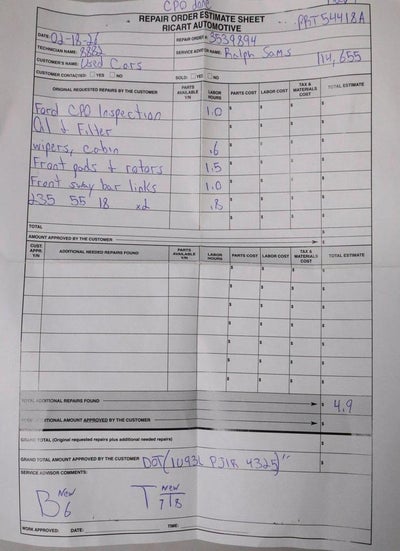 CPO done
REPAIR ORDER ESTIMATE SHEET
RICART AUTOMOTIVE
PRT54418A
DATE: 02-18-26 REPAIR ORDER #: 3539894
TECHNICIAN NAME: 8882 SERVICE ADVISOR NAME: Ralph Sams 114,655
CUSTOMER'S NAME: Used Cars
CUSTOMER CONTACTED: YES NO SOLD: YES NO
ORIGINAL REQUESTED REPAIRS BY THE CUSTOMER PARTS AVAILABLE Y/N LABOR HOURS PARTS COST LABOR COST TAX & MATERIALS COST TOTAL ESTIMATE
Ford CPO Inspection 1.0 $ $ $ $
Oil & Filter $ $ $ $
wipers, cabin .6 $ $ $ $
Front pads & rotors 1.5 $ $ $ $
Front sway bar links 1.0 $ $ $ $
235 55 18 x2 .8 $ $ $ $
$ $ $ $
TOTAL $
AMOUNT APPROVED BY THE CUSTOMER $
CUST. APPR. Y/N ADDITIONAL NEEDED REPAIRS FOUND PARTS AVAILABLE Y/N LABOR HOURS PARTS COST LABOR COST TAX & MATERIALS COST TOTAL ESTIMATE
$ $ $ $
$ $ $ $
$ $ $ $
$ $ $ $
$ $ $ $
$ $ $ $
$ $ $ $
TOTAL ADDITIONAL REPAIRS FOUND $ 4.9
ADDITIONAL AMOUNT APPROVED BY THE CUSTOMER $
GRAND TOTAL (Original requested repairs plus additional needed repairs) $
GRAND TOTAL AMOUNT APPROVED BY THE CUSTOMER DOT(1U93L PJ1R 4325)" $
SERVICE ADVISOR COMMENTS:
B New 6 T New 7 7 8
WORK APPROVED: DATE: TIME: